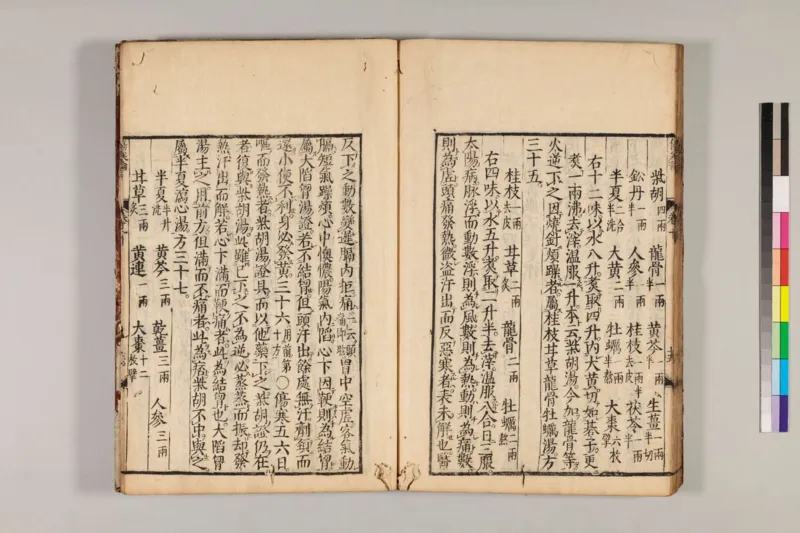 柴胡四兩 龍骨一兩 黄芩一兩 生薑一兩半切
鈆丹一兩半 人參一兩半 桂枝一兩半去皮 茯苓一兩半
半夏二合半洗 大黄二兩 牡蠣一兩半熬 大棗六枚擘
右十二味以水八升煑取四升内大黄切如碁子更
煑一兩沸去滓温服一升本云柴胡湯今加龍骨等
火逆下之因燒針煩躁者屬桂枝甘草龍骨牡蠣湯方
三十五
桂枝一兩去皮 甘草二兩炙 龍骨二兩 牡蠣二兩熬
右四味以水五升煑取二升半去滓温服八合日三服
太陽病脉浮而動數浮則為風數則為熱動則為痛數
則為虚頭痛發熱微盗汗出而反惡寒者表未解也醫
反下之動數變遲膈内拒痛 胃中空虚客氣動
膈短氣躁煩心中懊憹陽氣内陥心下因鞕則為結胷
屬大陥胷湯證若不結胷但頭汗出餘處無汗劑頸而
還小便不利身必發黄三十六用前第十方○傷寒五六日
嘔而發熱者柴胡湯證具而以他藥下之柴胡證仍在
者復與柴胡湯此雖已下之不為逆必蒸蒸而振却發
熱汗出而解若心下滿而鞕痛者此為結胷也大陥胷
湯主之用前方但滿而不痛者此為痞柴胡不中與之
屬半夏瀉心湯方三十七
半夏半升洗 黄芩三兩 乾薑三兩 人參三兩
甘草三兩炙 黄連一兩 大棗十二枚擘